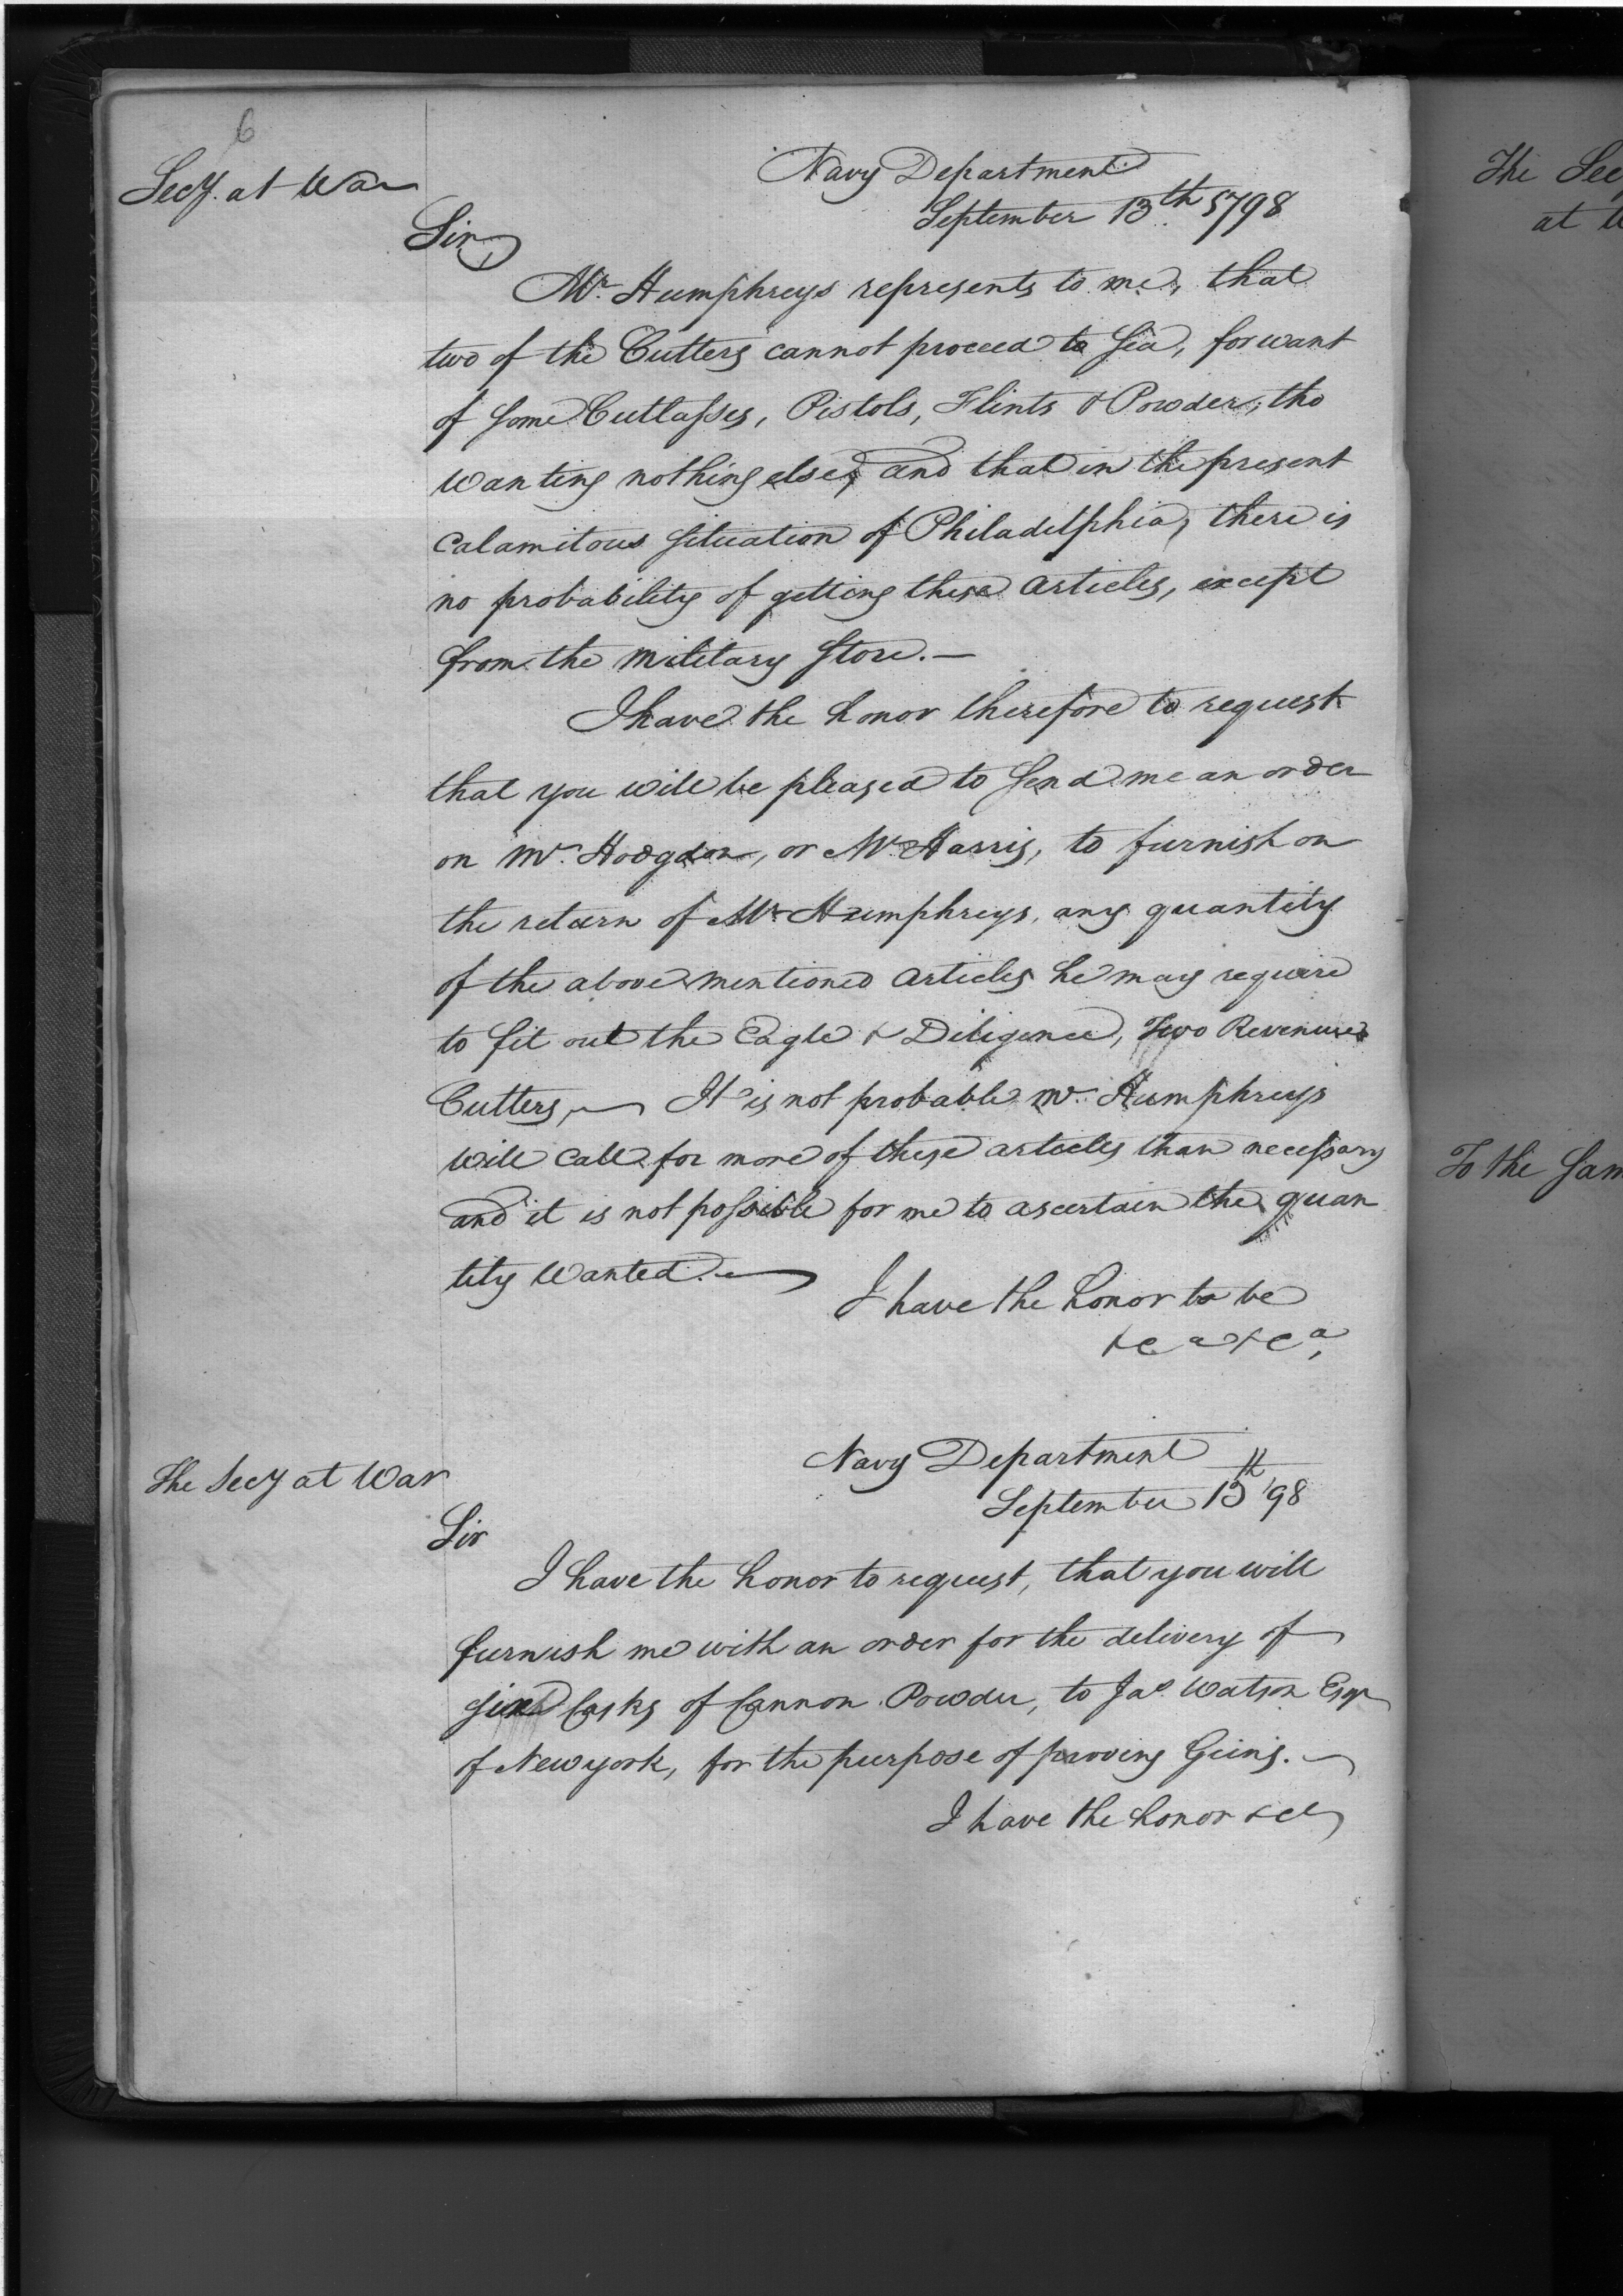 6
Secy. at War
Navy Department
September 13th 1798
Sir,
Mr. Humphreys represents to me, that
two of the Cutters cannot proceed to Sea, for want
of some Cutlasses, Pistols, Flints & Powder, tho
wanting nothing else, and that in the present
calamitous situation of Philadelphia, there is
no probability of getting these articles, except
from the military Store.—
I have the honor therefore to request
that you will be pleased to send me an order
on Mr. Hodgdon, or Mr. Harris, to furnish on
the return of Mr. Humphreys, any quantity
of the above mentioned articles he may require
to fit out the Eagle & Diligence, Two Revenue
Cutters,— It is not probable Mr. Humphreys
will call for more of these articles than necessary
and it is not possible for me to ascertain the quan
tity wanted.—
I have the honor to be
&c a &c a,
The Secy at War
Navy Department
September 13th '98
Sir
I have the honor to request, that you will
furnish me with an order for the delivery of
Casks of Cannon Powder, to Jas. Watson Esqr
of New york, for the purpose of proving Guns.—
I have the honor &c
The Sec
at
To the Sam